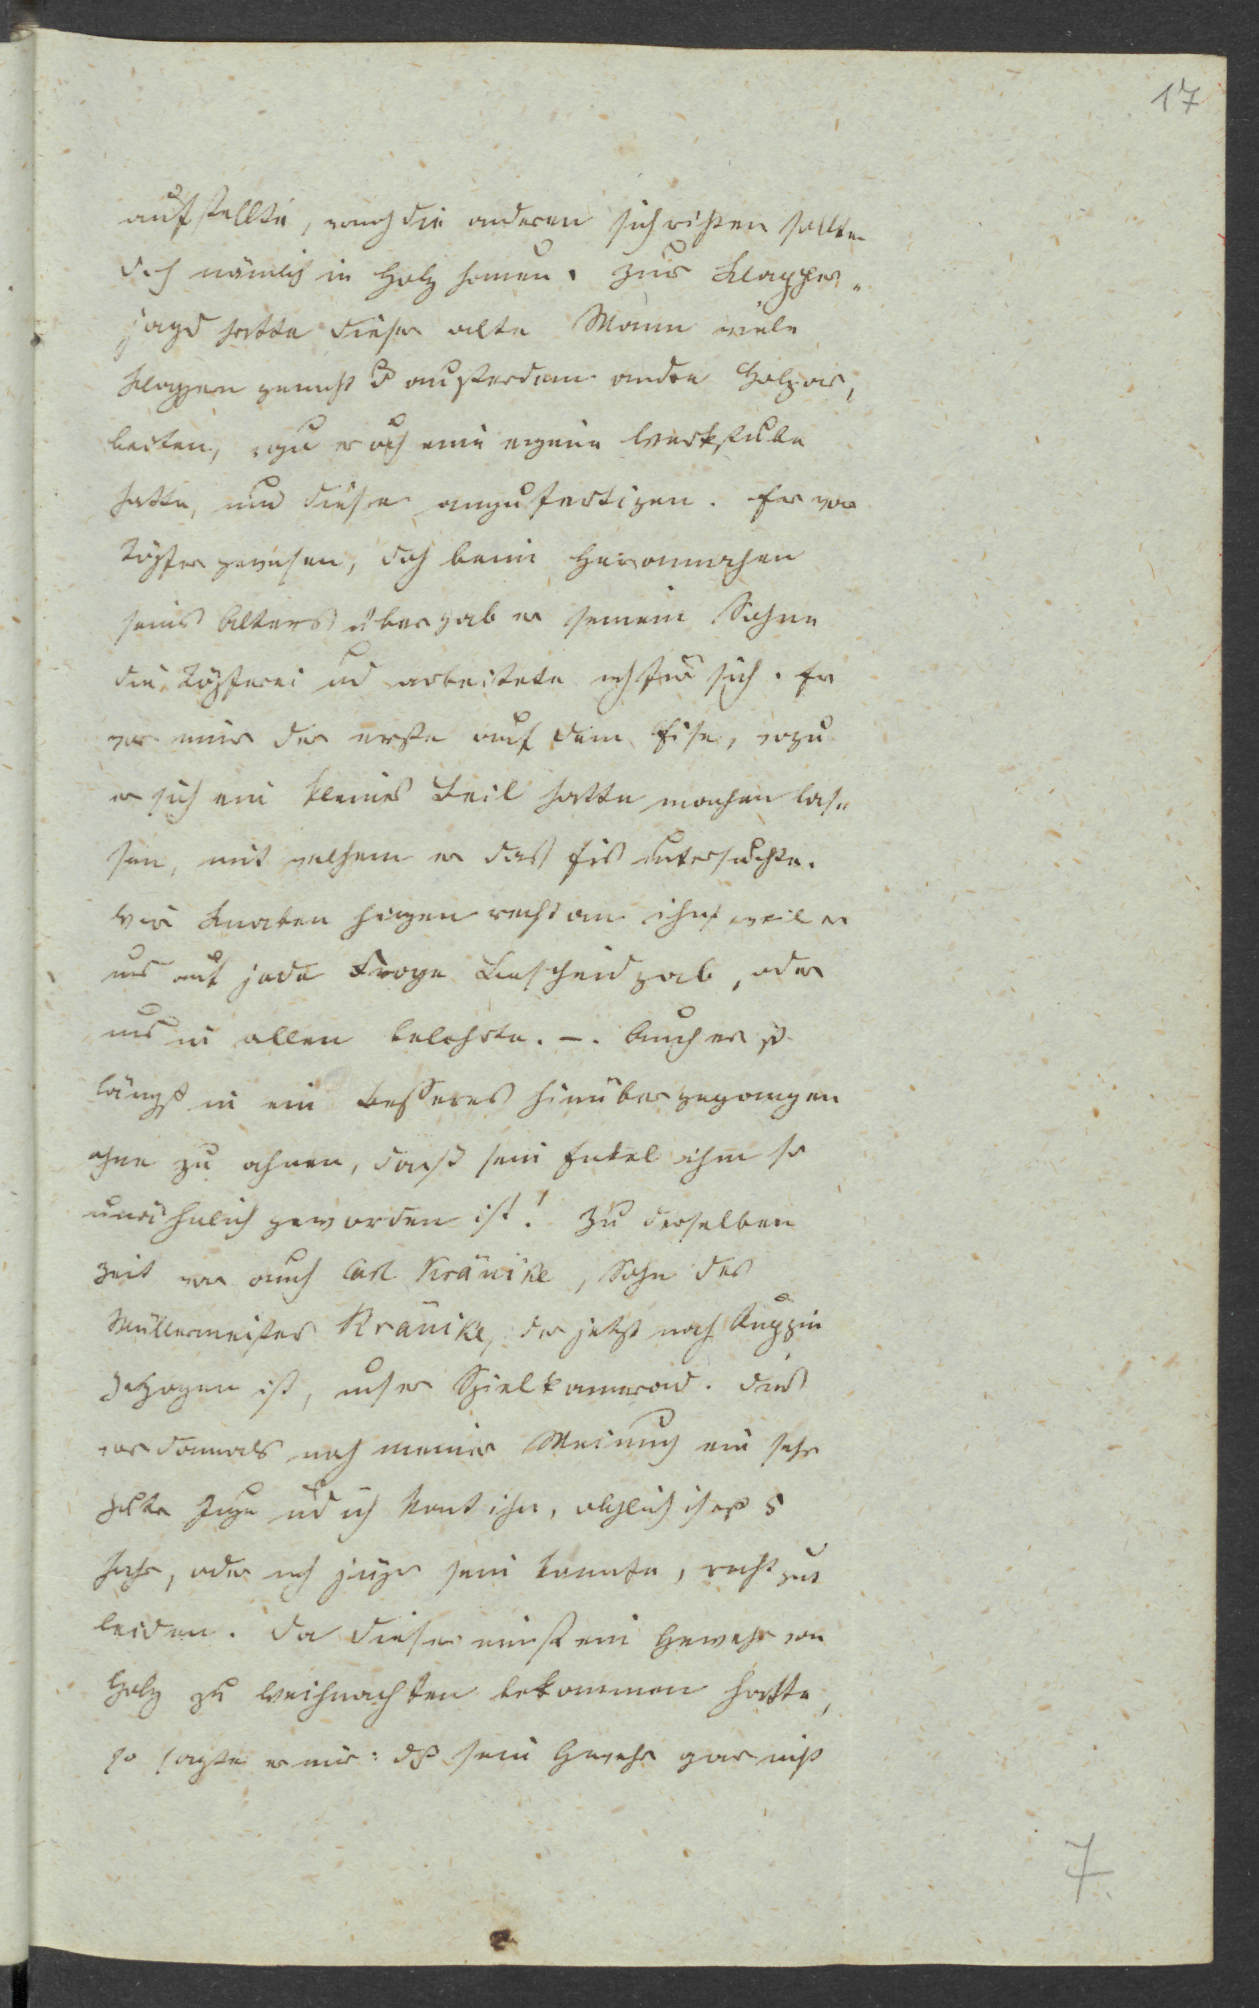 17
aufstellte, wonach die anderen sich richten sollten
doch nämlich in Holz hauen. Zur Klapper-
jagd hatte dieser alte Mann viele
Klappern gemacht & außerdem andre Holzar-
beiten, wozu er auch eine eigene Werkstube
hatte, um diese anzufertigen. Er war
Töpfer gewesen, doch beim Herannahen
seines Alters übergab er seinem Sohne
die Töpferei und arbeitete noch für sich. Er
war immer der erste auf dem Eise, wozu
er sich ein kleines Beil hatte machen las-
sen, mit welchem er das Eis untersuchte.
Wir Knaben hingen recht an ihm, weil er
uns auf jede Frage Bescheid gab, oder
uns in allem belehrte. –. Auch er ist
längst in ein besseres hinübergegangen
ohne zu ahnen, daß sein Enkel ihm so
unähnlich geworden ist! Zu derselben
Zeit war auch Carl Kränike, Sohn des
Müllermeisters Kränike, der jetzt nach Ruppin
gezogen ist, unser Spielkamerad. Dies
war damals nach meiner Meinung ein sehr
guter Junge und ich konnt ihn, obgleich ich erst 5
Jahr, oder noch jünger sein konnte, recht gut
leiden. Da dieser einst ein Gewehr von
Holz zu Weihnachten bekommen hatte,
so sagte er mir: daß sein Gewehr gar nicht
7.